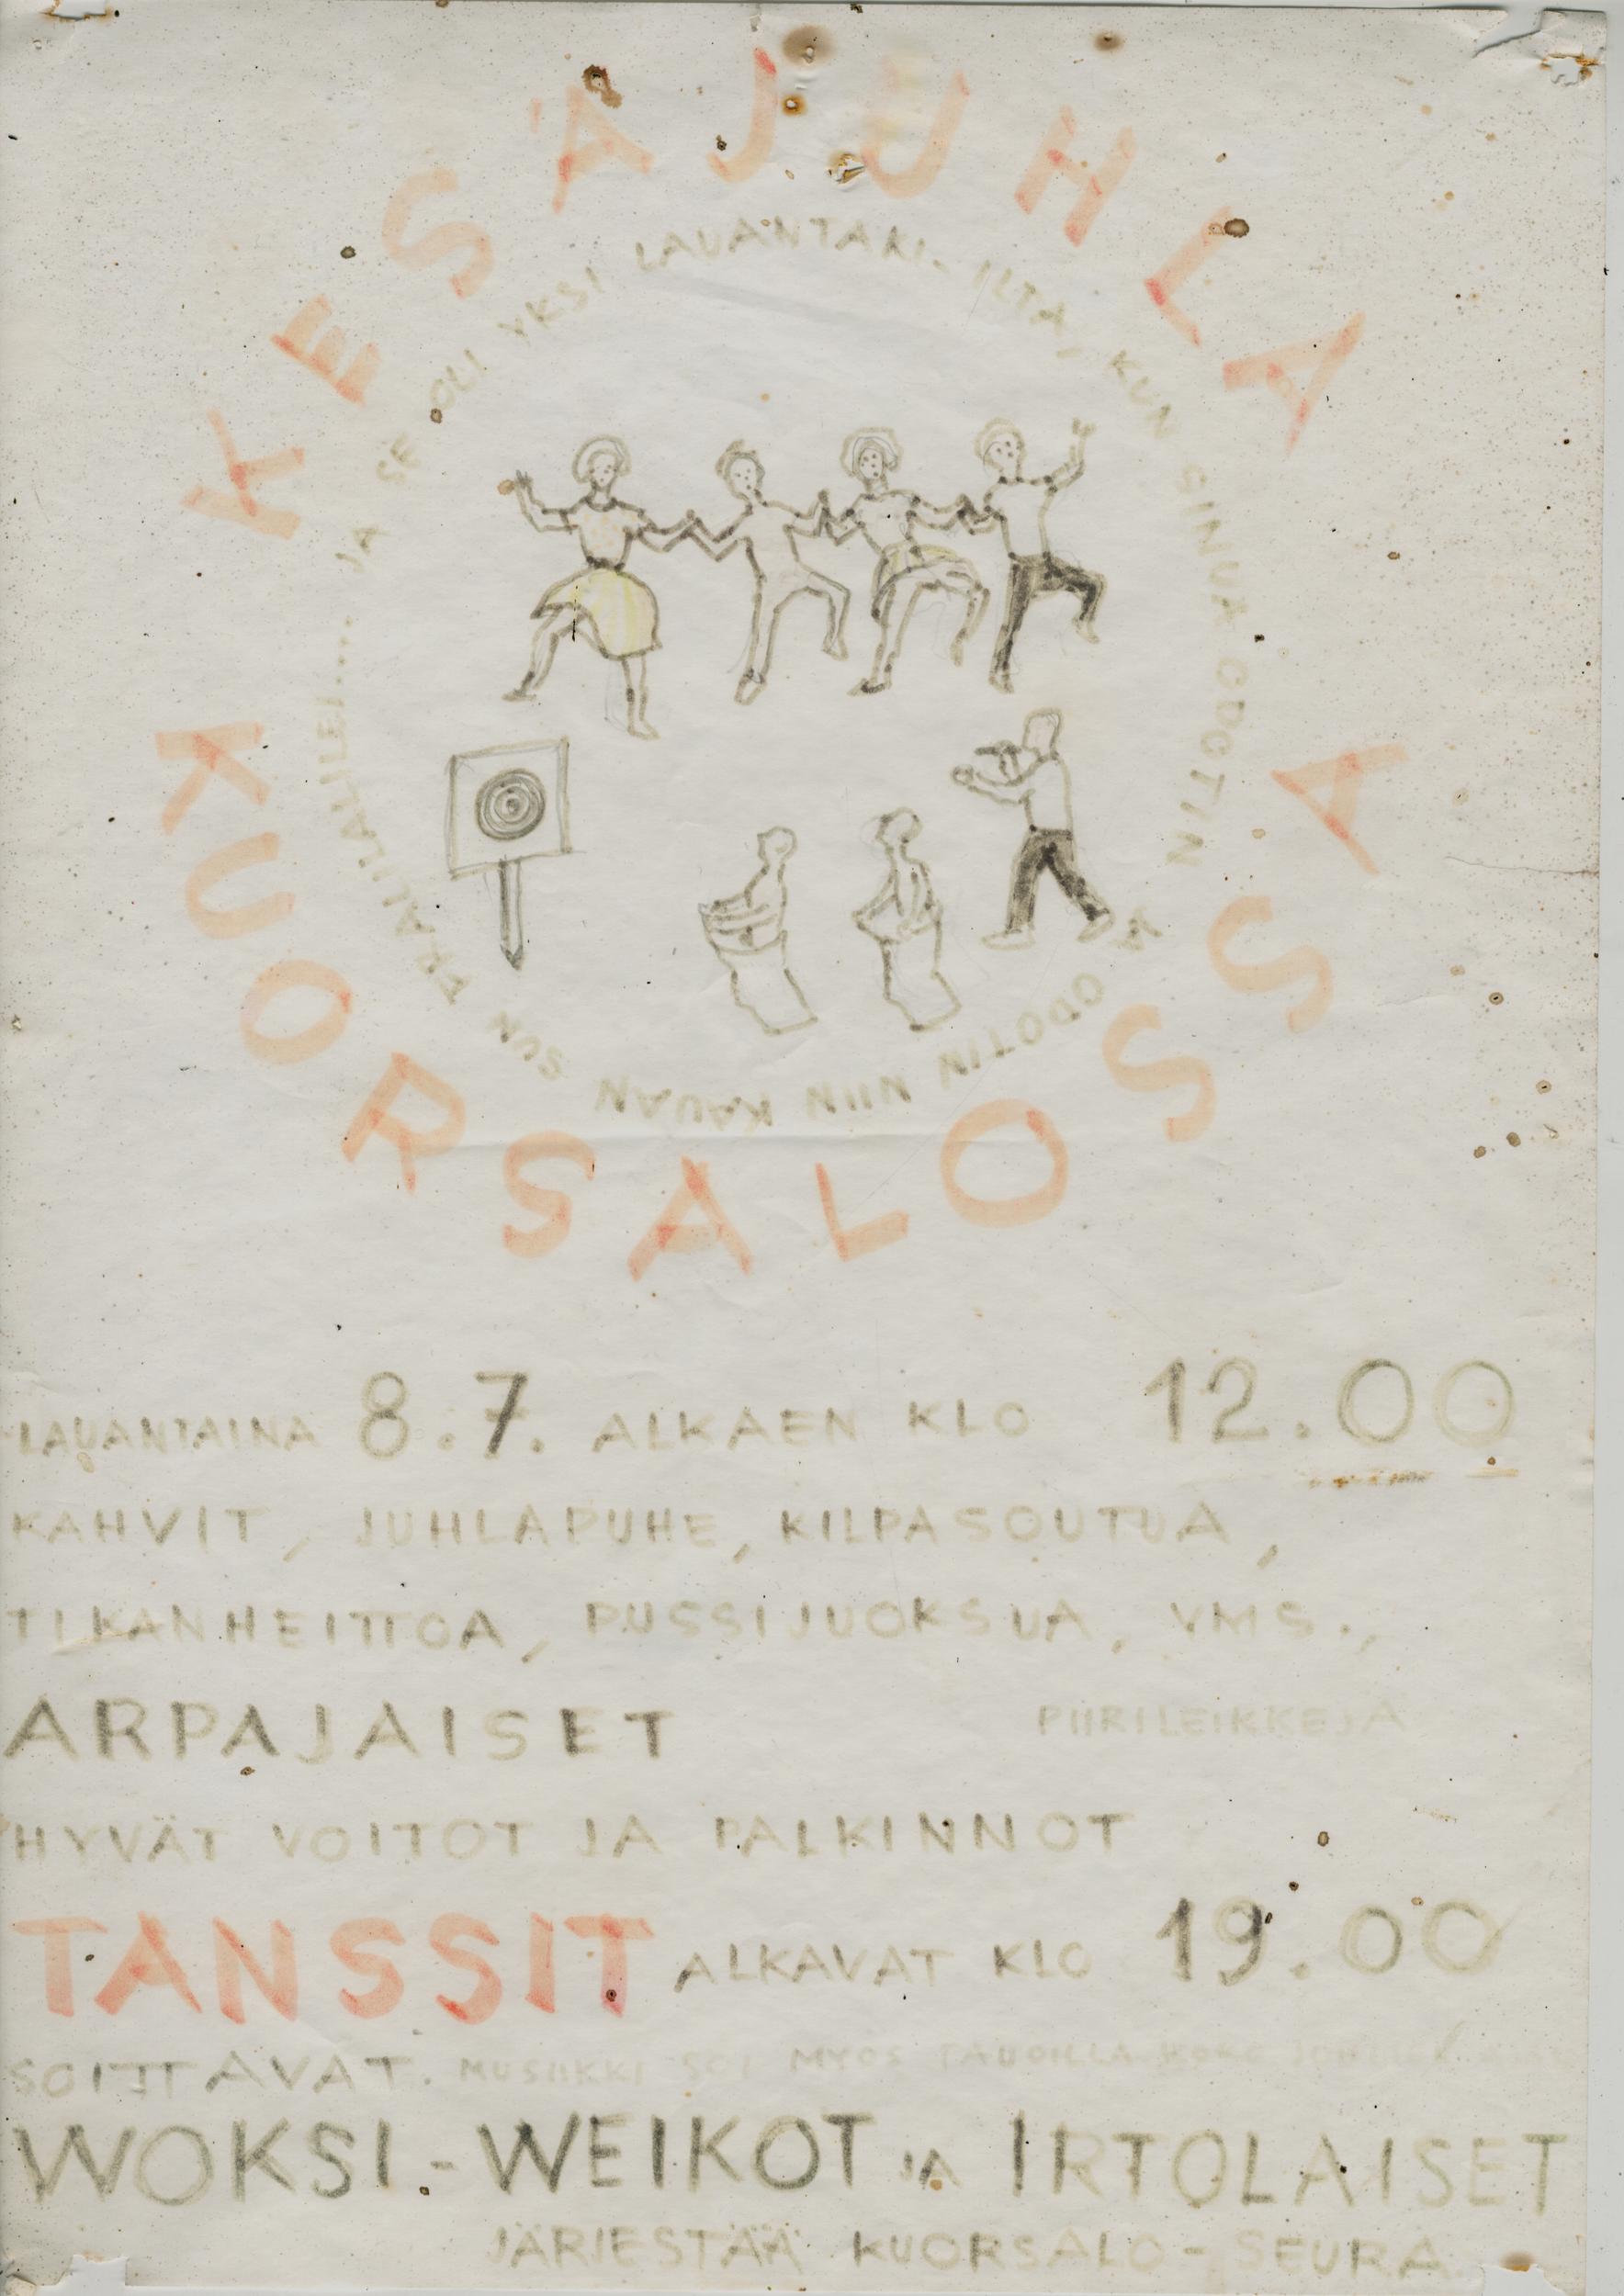 KESÄJUHLA
KUORSALOSSA
JA SE OLI YKSI LAUANTAKI-ILTA, KUN SINUA ODOTIN
JA ODOTIN NIIN KAUAN SUN
TRALILALILEI....
LAUANTAINA 8.7. ALKAEN KLO 12.00
KAHVIT, JUHLAPUHE, KILPASOUTUA,
TIKANHEITTOA, PUSSIJUOKSUA, YMS.,
ARPAJAISET PIIRILEIKKEJÄ
HYVÄT VOITOT JA PALKINNOT
TANSSIT ALKAVAT KLO 19.00
SOITTAVAT. MUSIIKKI SOI MYÖS TAUOILLA KOKO
WOKSI-WEIKOT JA IRTOLAISET
JÄRJESTÄÄ KUORSALO-SEURA